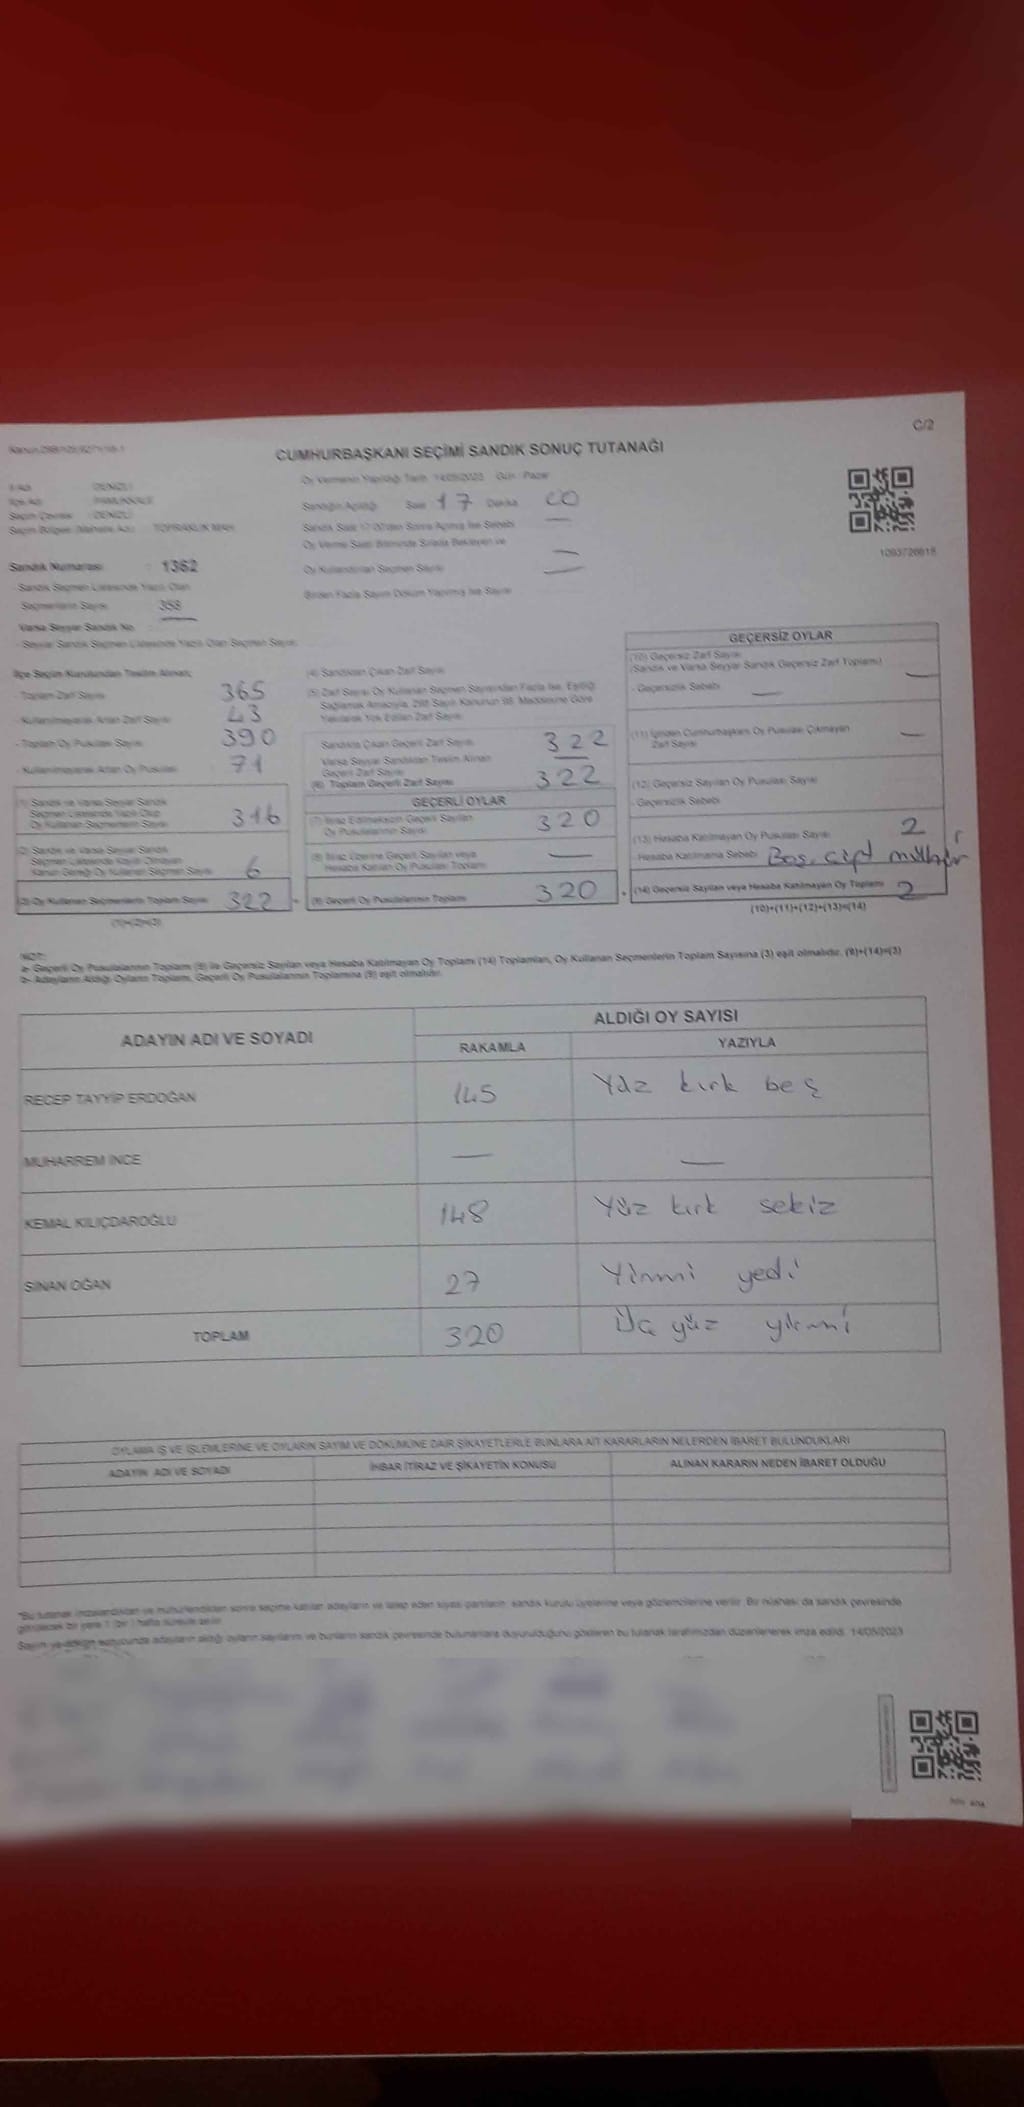 C/2
CUMHURBAŞKANI SEÇİMİ SANDIK SONUÇ TUTANAĞI
İl Adı : DENİZLİ
İlçe Adı : PAMUKKALE
Seçim Çevresi : DENİZLİ
Seçim Bölgesi (Mahalle Adı) : TOPRAKLIK MAH.
Oy Vermenin Yapıldığı Tarih 14/05/2023 Gün : Pazar
Sandığın Açılışı Saat 17 Dakika 00
Sandık Saat 17:00'den Sonra Açılmış İse Sebebi —
Oy Verme Saati Bitiminde Sırada Bekleyen ve
Oy Kullandırılan Seçmen Sayısı —
Birden Fazla Sayım Döküm Yapılmış İse Sayısı —
1093726618
Sandık Numarası : 1362
- Sandık Seçmen Listesinde Yazılı Olan
Seçmenlerin Sayısı 358
Varsa Seyyar Sandık No : —
- Seyyar Sandık Seçmen Listesinde Yazılı Olan Seçmen Sayısı
İlçe Seçim Kurulundan Teslim Alınan;
- Toplam Zarf Sayısı 365
- Kullanılmayarak Artan Zarf Sayısı 43
- Toplam Oy Pusulası Sayısı 390
- Kullanılmayarak Artan Oy Pusulası 71
(1) Sandık ve Varsa Seyyar Sandık
Seçmen Listesinde Yazılı Olup
Oy Kullanan Seçmenlerin Sayısı 316
(2) Sandık ve Varsa Seyyar Sandık
Seçmen Listesinde Kayıtlı Olmayan
Kanun Gereği Oy Kullanan Seçmen Sayısı 6
(3) Oy Kullanan Seçmenlerin Toplam Sayısı 322
(1)+(2)=(3)
(4) Sandıktan Çıkan Zarf Sayısı
(5) Zarf Sayısı Oy Kullanan Seçmen Sayısından Fazla İse, Eşitliği
Sağlamak Amacıyla, 298 Sayılı Kanunun 98. Maddesine Göre
Yakılarak Yok Edilen Zarf Sayısı
Sandıkta Çıkan Geçerli Zarf Sayısı 322
Varsa Seyyar Sandıktan Teslim Alınan
Geçerli Zarf Sayısı —
(6) Toplam Geçerli Zarf Sayısı 322
GEÇERLİ OYLAR
(7) İtiraz Edilmeksizin Geçerli Sayılan
Oy Pusulalarının Sayısı 320
(8) İtiraz Üzerine Geçerli Sayılan veya
Hesaba Katılan Oy Pusulası Toplamı —
(9) Geçerli Oy Pusulalarının Toplamı 320
GEÇERSİZ OYLAR
(10) Geçersiz Zarf Sayısı
(Sandık ve Varsa Seyyar Sandık Geçersiz Zarf Toplamı) —
- Geçersizlik Sebebi —
(11) İçinden Cumhurbaşkanı Oy Pusulası Çıkmayan
Zarf Sayısı —
(12) Geçersiz Sayılan Oy Pusulası Sayısı
- Geçersizlik Sebebi
(13) Hesaba Katılmayan Oy Pusulası Sayısı 2
- Hesaba Katılmama Sebebi Boş, çift mühür
(14) Geçersiz Sayılan veya Hesaba Katılmayan Oy Toplamı 2
(10)+(11)+(12)+(13)=(14)
NOT:
a- Geçerli Oy Pusulalarının Toplamı (9) ile Geçersiz Sayılan veya Hesaba Katılmayan Oy Toplamı (14) Toplamları, Oy Kullanan Seçmenlerin Toplam Sayısına (3) eşit olmalıdır. (9)+(14)=(3)
b- Adayların Aldığı Oyların Toplamı, Geçerli Oy Pusulalarının Toplamına (9) eşit olmalıdır.
ADAYIN ADI VE SOYADI
ALDIĞI OY SAYISI
RAKAMLA YAZIYLA
RECEP TAYYİP ERDOĞAN 145 Yüz kırk beş
MUHARREM İNCE — —
KEMAL KILIÇDAROĞLU 148 Yüz kırk sekiz
SİNAN OĞAN 27 Yirmi yedi
TOPLAM 320 Üç yüz yirmi
OYLAMA İŞ VE İŞLEMLERİNE VE OYLARIN SAYIM VE DÖKÜMÜNE DAİR ŞİKAYETLERLE BUNLARA AİT KARARLARIN NELERDEN İBARET BULUNDUKLARI
ADAYIN ADI VE SOYADI İHBAR İTİRAZ VE ŞİKAYETİN KONUSU ALINAN KARARIN NEDEN İBARET OLDUĞU
"Bu tutanak imzalandıktan ve mühürlendikten sonra seçime katılan adayların ve talep eden siyasi partilerin, sandık kurulu üyelerine veya gözlemcilerine verilir. Bir nüshası da sandık çevresinde
görülecek bir yere 1 (bir) hafta süreyle asılır.
Sayım ve döküm sonucunda adayların aldığı oyların sayılarını ve bunların sandık çevresinde bulunanlara duyurulduğunu gösteren bu tutanak tarafımızdan düzenlenerek imza edildi. 14/05/2023